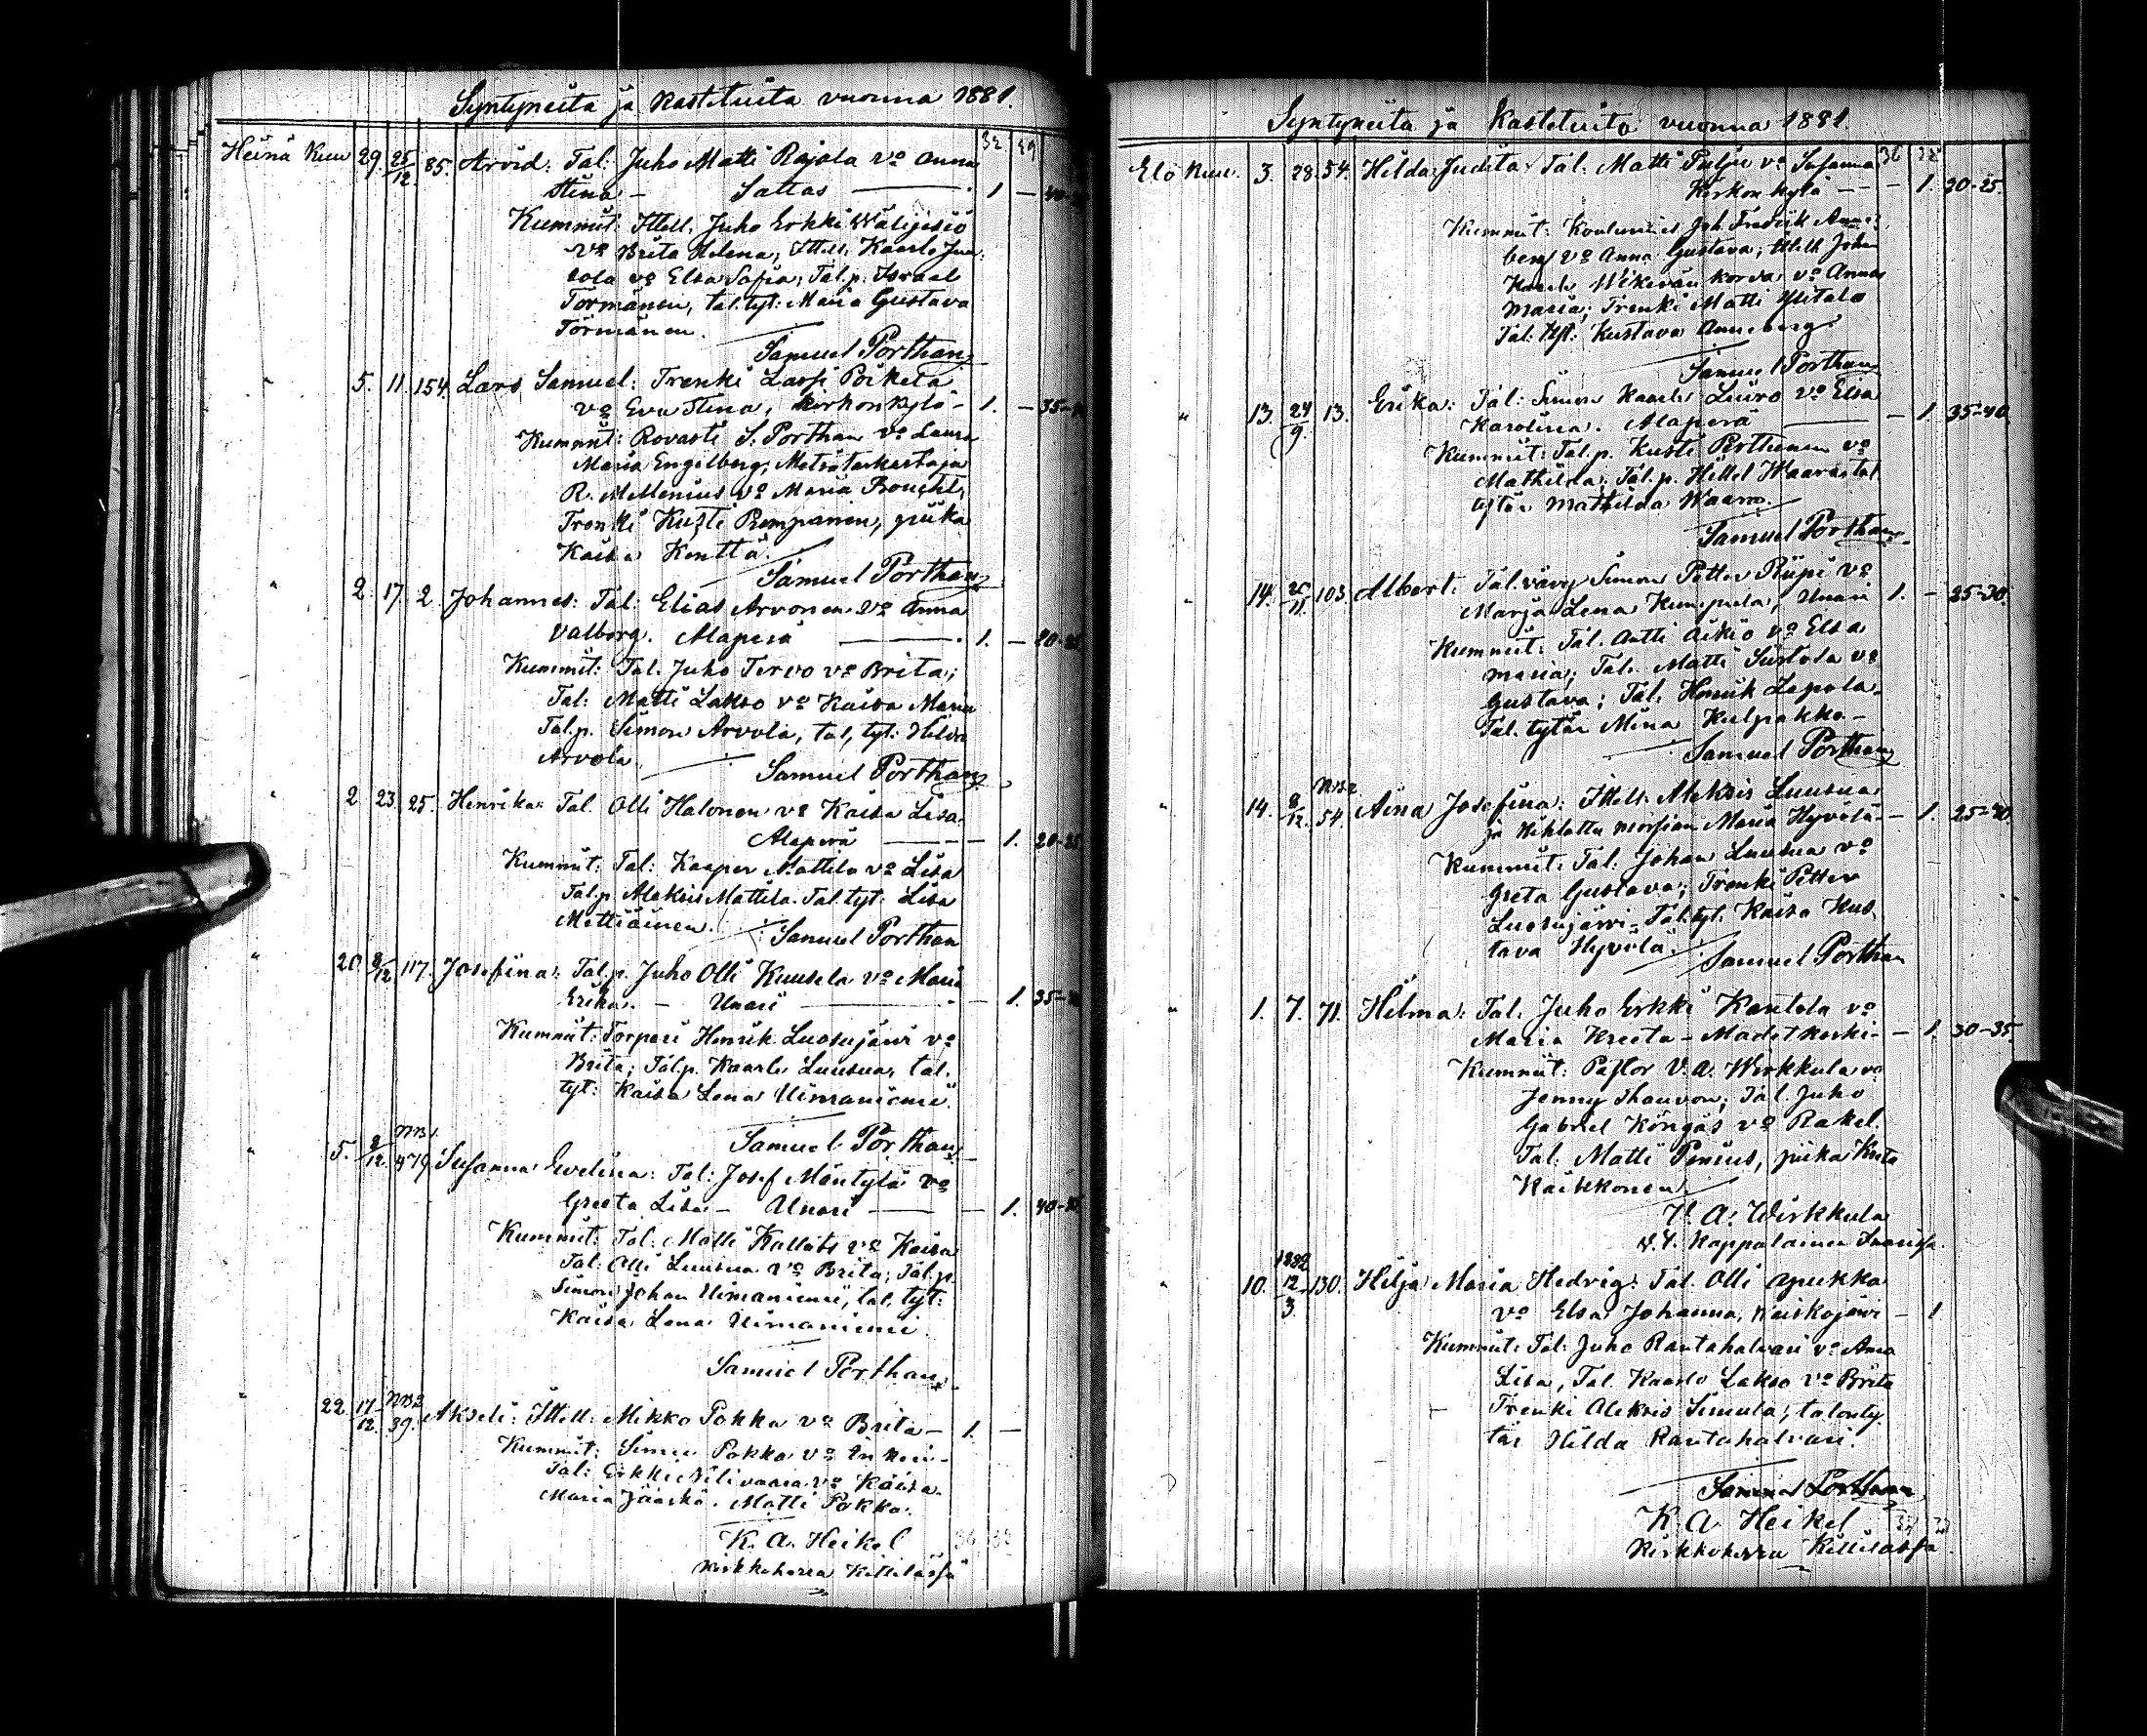 Syntyneitä ja Kastetuita vuonna 1881.
32 29
Heinä Kuu 29. 25/12. 85. Arvid: Tal: Juho Matti Rajala vo Anna
Stina - Sattas 1 - 40-
Kummit: Ittell. Juho Erkki Wälijesiö
vo Brita Helena; Ittell. Kaarlo
vo Elsa Sofia; Tal.p. Israel
Törmänen, tal.tyt: Maria Gustava
Törmänen.
Samuel Porthan
" 5. 11. 154. Lars Samuel: Trenki Lassi Poiketa
vo Eva Stina, Kirkonkylä - 1. - 35-
Kummit: Rovasti S. Porthan vo Laura
Maria Engelberg; Metsätarkastaja
R. Mellenius vo Maria
Trenki Kusti Pumpanen, piika
Kaisa Kenttä.
Samuel Porthan
" 2. 17. 2. Johannes: Tal: Elias Arvonen vo Anna
Valborg. Alaperä 1. - 20-25
Kummit: Tal. Juho Tervo vo Brita;
Tal: Matti Lakso vo Kaisa Maria
Tal.p. Simon Arvola, tal, tyt: Hilda
Arvola.
Samuel Porthan
" 2. 23. 25. Henrika: Tal. Olli Halonen vo Kaisa Lisa.
Alaperä - 1. 20-25
Kummit: Tal: Kasper Mattila vo Lisa
Tal.p Aleksis Mattila. Tal.tyt: Lisa
Mettiäinen.
Samuel Porthan
" 20. 8/12 117. Josefina: Tal.p. Juho Olli Kuusela vo Maria
Erika. - Unari - 1. 35-
Kummit: Torpari Henrik Luosujärvi vo
Brita; Tal.p. Kaarlo Luusua, tal.
tyt: Kaisa Lena Uimaniemi.
Samuel Porthan
NB1.
" 5. 8/12. 479 Susanna Evelina: Tal: Josef Mäntylä vo
Greeta Lisa - Unari - 1. 40-
Kummit: Tal: Matti Kallats vo Kaisa
Tal: Olli Luusua vo Brita; Tal.p.
Simon Johan Uimaniemi, tal, tyt:
Kaisa Lena Uimaniemi.
Samuel Porthan
NB2
" 22. 17/12. 39. Akseli: Ittell: Mikko Pokka vo Brita - 1. -
Kummit: Simo Pokka vo
Tal: Erkki Nilivaara vo Kaisa.
Maria Jääskö. Matti Pokka.
K. A. Heikel
Kirkkoherra Kittilässä
Syntyneitä ja Kastetuita vuonna 1881.
Elo Kuu. 3. 28. 54. Hilda Judita: Tal: Matti Pulju vo Susanna
Kirkon kylä - - - 1. 20-25.
Kummit: Koulumies Joh. Fredrik Anne-
berg vo Anna Gustava; Ittell. Johan
Kaarlo Wikevän korva vo Anna
Maria; Trenki Matti Ylitalo
Tal. tyt: Kustava Anneberg
Samuel Porthan
" 13. 24/9. 13. Erika: Tal: Simon Kaarlo Liuro vo Elsa
Karolina. Alaperä - 1. 35-40.
Kummit: Tal.p. Kusti Porttinen vo
Mathilda; Tal.p. Hillel Waara tal
tytär Mathilda Waara.
Samuel Porthan
" 14. 26/11. 103. Albert: Tal.vävy Simon Petter Riipi vo
Marja Lena Kumpula, Unari 1. - 25-30.
Kummit: Tal. Antti Aikio vo Elsa
Maria; Tal. Matti Siirtola vo
Gustava; Tal. Henrik Lapola.
Tal. tytär Mina Kulpakko -
Samuel Porthan
NB2
" 14. 8/12. 54. Aina Josefina: Ittell. Aleksis Luusua
ja kihlattu morsian Maria Hyvölä - 1. 25-40.
Kummit: Tal: Johan Luusua vo
Greta Gustava; Trenki Petter
Luosujärvi - Tal.tyt. Kaisa Kus
tava Hyvölä.
Samuel Porthan
" 1. 7. 71. Hilma: Tal. Juho Erkki Kautola vo
Maria Kreeta - Madetkoski - 1. 30-35.
Kummit: Pastor V. A. Wirkkula vo
Jenny Thauvon; Tal. Juho
Gabriel Köngäs vo Rakel.
Tal: Matti Penius, piika
Kaikkonen.
V. A. Wirkkula
v.t. Kappalainen
1882
" 10. 12/3. 130. Hilja Maria Hedvig: Tal. Olli Apukka
vo Elsa Johanna, Raiskojärvi - 1
Kummit: Tal: Juho Rautahalvari vo Anna
Lisa, Tal. Kaarlo Lakso vo Brita
Trenki Aleksis Simula, talonty
tär Hilda Rautahalvari.
Samuel Porthan
K. A. Heikel
Kirkkoherra Kittilässä.